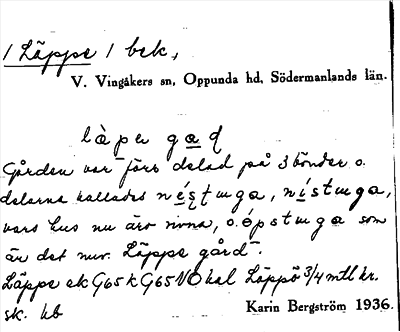 / Läppe / bek,
V. Vingåkers sn, Oppunda hd, Södermanlands län.
làpe
Gården var förr delad på 3 bönder o.
delarna kallades
vars hus nu äro rivna, o. som
är det nuv. Läppe gård.
Läppe ek G65 k G65NO kal Läppö 3/4 mtl kr.
sk. kb
Karin Bergström 1936.